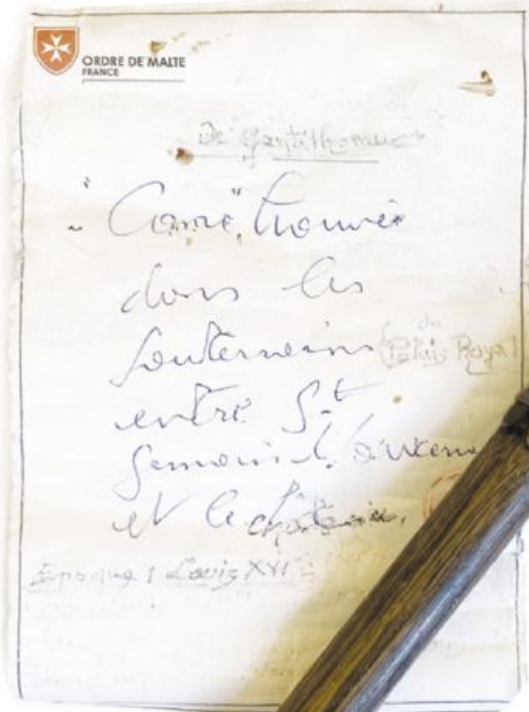 ORDRE DE MALTE
FRANCE
De Gentilhomme
"Canne" trouvée
dans les
souterrains
du
Palais Royal
entre St
Germain l'
et le château.
Epoque Louis XVI